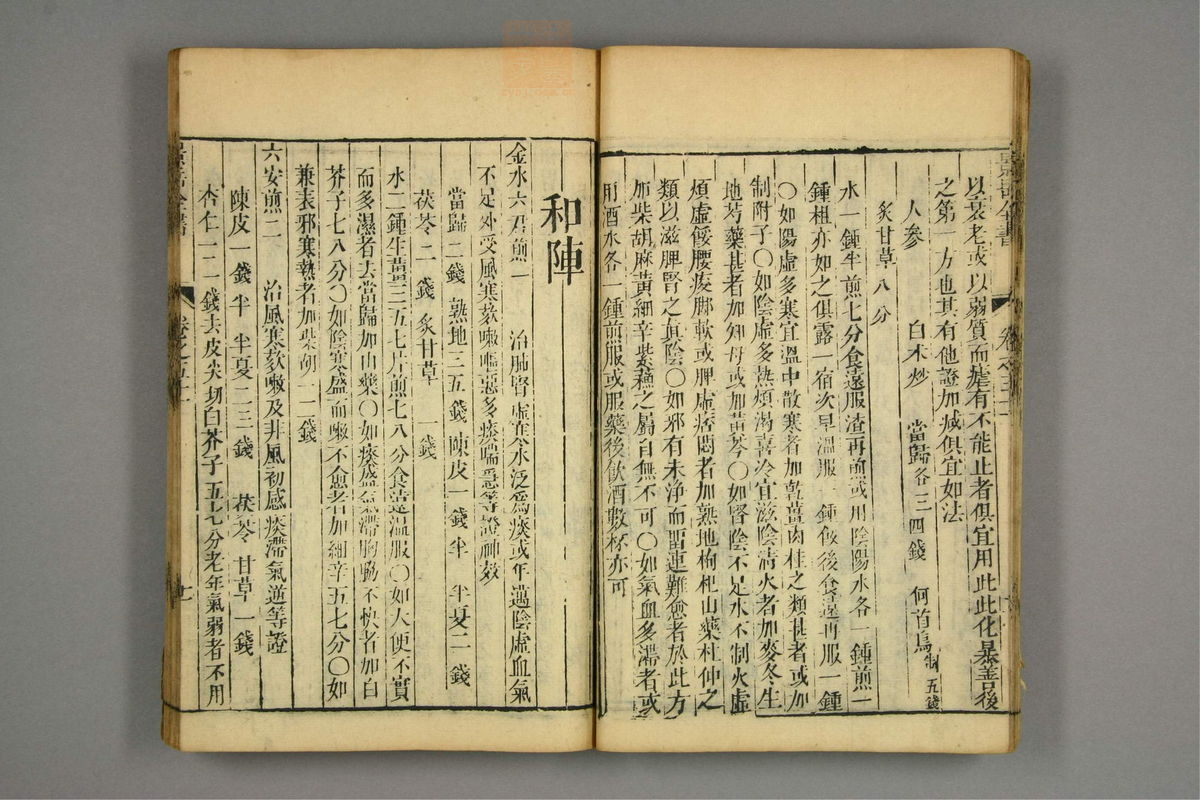 以衰老或以弱質而瘧有不能止者俱宜用此此化暴善後
之第一方也其有他證加減俱宜如法
人參 白术炒 當歸各三四錢 何首烏制五錢
炙甘草八分
水一鍾半煎七分食遠服渣再煎或用陰陽水各一鍾煎一
鍾柤亦如之俱露一宿次早溫服一鍾飯後食遠再服一鍾
○如陽虛多寒宜溫中散寒者加乾薑肉桂之類甚者或加
制附子○如陰虛多熱煩渴喜冷宜滋陰清火者加麥冬生
地芍藥甚者加知母或加黃芩○如腎陰不足水不制火虛
煩虛餒腰痠脚軟或脾虛痞悶者加熟地枸杞山藥杜仲之
類以滋脾腎之真陰○如邪有未淨而留連難愈者於此方
加柴胡麻黃細辛紫蘇之屬自無不可○如氣血多滯者或
用酒水各一鍾煎服或服藥後飲酒數杯亦可
和陣
金水六君煎一 治肺腎虛寒水泛爲痰或年邁陰虛血氣
不足外受風寒欬嗽嘔惡多痰喘急等證神效
當歸二錢 熟地三五錢 陳皮一錢半 半夏二錢
茯苓二錢 炙甘草一錢
水二鍾生薑三五七片煎七八分食遠溫服○如大便不實
而多濕者去當歸加山藥○如痰盛氣滯胸脇不快者加白
芥子七八分○如陰寒盛而嗽不愈者加細辛五七分○如
兼表邪寒熱者加柴胡一二錢
六安煎二 治風寒欬嗽及非風初感痰滯氣逆等證
陳皮一錢半 半夏二三錢 茯苓 甘草一錢
杏仁一二錢去皮尖切 白芥子五七分老年氣弱者不用